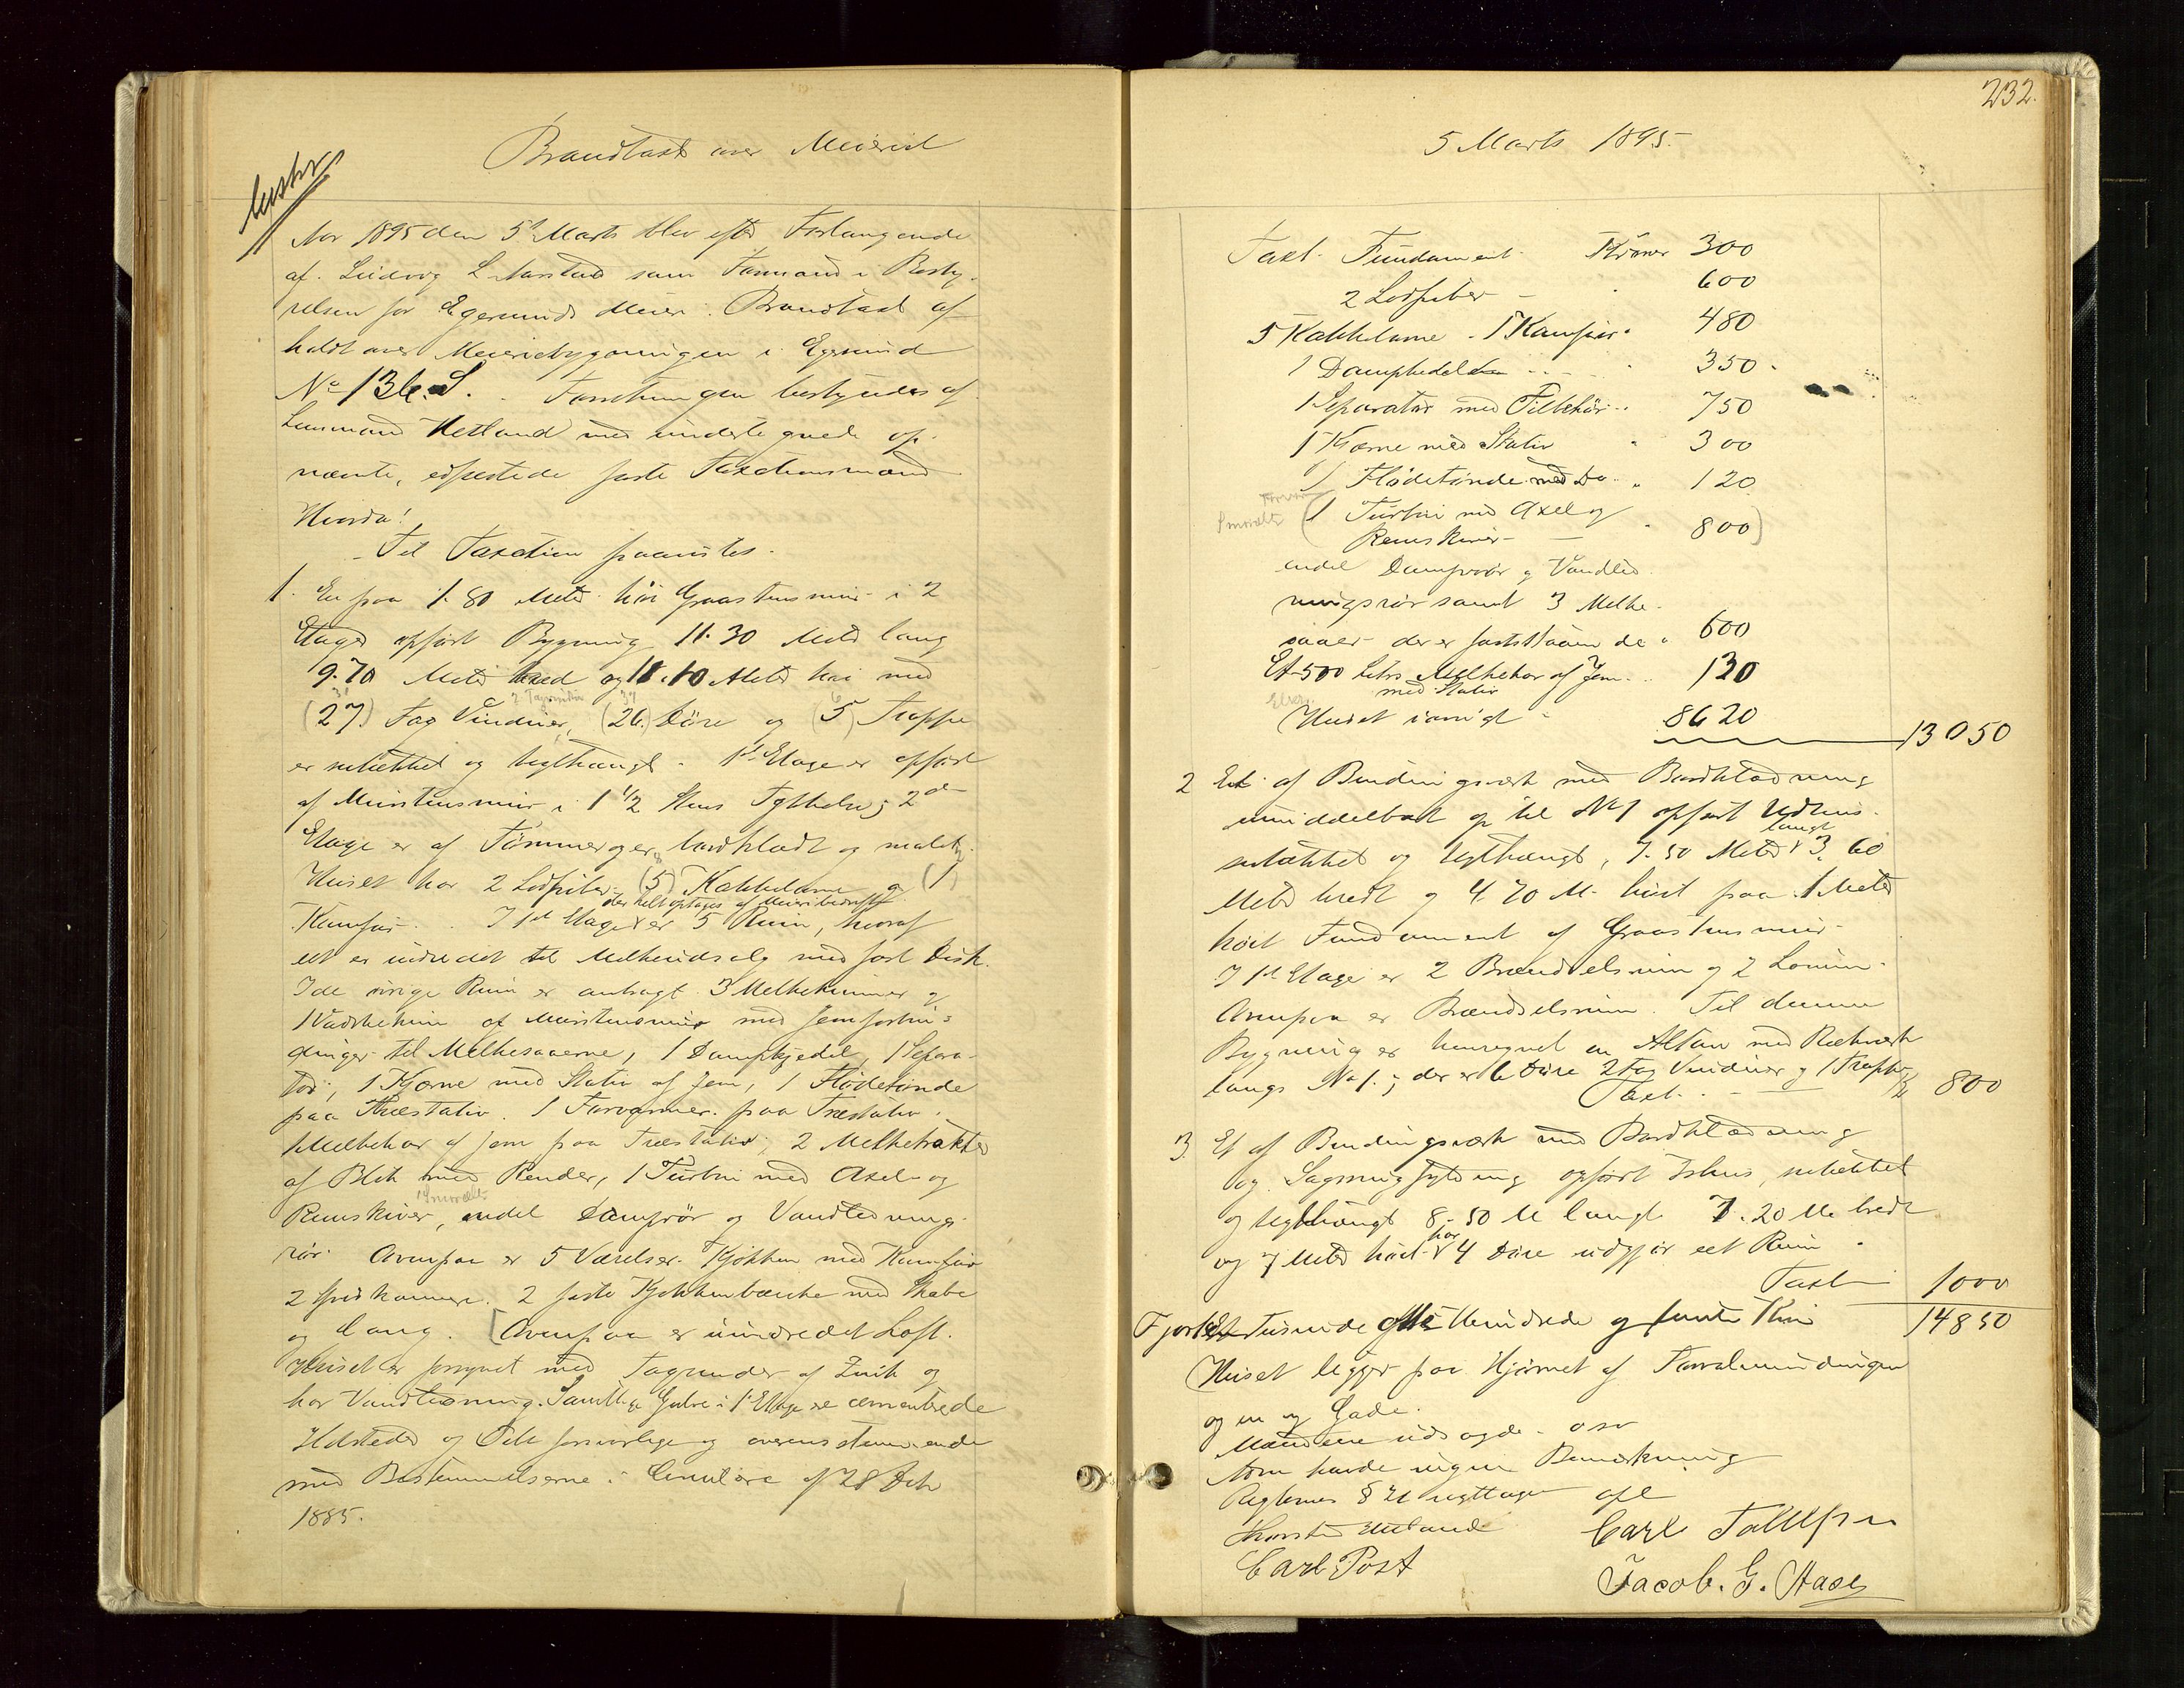 Brandtaxt over Meieriet
Aar 1895 den 5te Marts blev efter Forlangende
af Ludvig L Aarstad som Formand i Besty-
relsen for Egersunds Meieri Brandtaxt af-
holdt over Meieribygningen i Egersund
No 136.S. Forretningen bestyredes af
Lensmand Hetland med undertegnede op-
nævnte, edfæstede faste Taxationsmænd
Hvorda!
Til Taxation paavistes.
1. En paa 1.80 Meter høi Graastensmur i 2
Etager opført Bygning 11.30 Meter lang
9.70 Meter bred og 8.10 Meter høi med
(27) Fag Vinduer, (26.) Döre og (5) Trappe
er suttættet og teglhængt. 1ste Etage er opført
af Murstensmur i 1 1/2 Stens Tykkelse; 2den
Etage er af Tømmer og er bordklædt og malet.
Huset har 2 Lodpiber (5) Kakkelovne og (1)
der helt optages af Meieribedrift
Komfur. I 1ste Etage er 5 Rum, hvoraf
eet er indredet til Melkeudsalg med fast Disk.
I de øvrige Rum er anbragt 3 Melkekummer og
1 Vadskekum af Murstensmur med Jernforbin-
dinger til Melkesaaerne, 1 Dampkjedel, 1 Separa-
tor, 1 Kjærne med Stativ af Jern, 1 Flödetönde
paa Træstativ. 1 Forvarmer paa Træstativ.
Melkekar af Jern paa Træstativ, 2 Melketrakter
af Blik med Render, 1 Turbin med Axel og
1 Smörælter
Remskiver, endel Damprör og Vandlednings-
rör. Ovenpaa er 5 Værelser. Kjøkken med Komfur
2 Spiskammere. 2 faste Kjøkkenbænke med Skabe
og Gang. [Ovenpaa er uindredet Loft.
Huset er forsynet med Tagrender af Zink og
har Vandledning. Samtlige Gulve i 1ste Etage er cementerede
Ildsteder og Piber forsvarlige og overensstemmende
med Bestemmelserne i Circulære af 28 Dcbr
1885.
232.
5 Marts 1895.
Taxt. Fundament Kroner 300
2 Lodpiber - 600
5 Kakkelovne - 1 Komfur 480
1 Dampkedel 350
1 Separator med Tilbehör 750
1 Kjærne med Stativ 300
1 Flödetönde med Do 120
Forvarmer
Smörælter (1 Turbin med Axel og
Remskiver - 800)
endel Damprör og Vandled-
ningsrör samt 3 Melke-
saaer der er fastståaende 600
Et 500 Liters Melkekar af Jern 130
med Stativ
Huset iøvrigt 8620
13050
2 Et af Bindingsverk med Bordklædning
umiddelbart op til No 1 opført Udhus
langt
suttættet og teglhængt, 7.50 Meter 3.60
Meter bredt og 4.70 M. høit paa 1 Meter
høit Fundament af Graastensmur
I 1ste Etage er 2 Brændselsrum og 2 Lorum
Ovenpaa er Brændselsrum. Til denne
Bygning er henregnet en Altan med Rækverk
langs No 1.; der er 6 Döre 2 Fag Vinduer og 1 Trappe
Taxt. 800
3 Et af Bindingsverk med Bordklædning
og Sagmugfyldning opført Ishus, suttættet
og teglhængt 8.50 M langt 7.20 M. bredt
har
og 7 Meter høit 4 Döre udgjør eet Rum
Taxt 1000
Fjorten Tusinde otte Hundrede og femti Kr 14850
Huset ligger paa Hjørnet af
og en ny Gade.
Mændene udsagde osv
som havde ingen Bemærkning
Reglernes § 21 iagttagen
opl
Carl Tollefsen
Carl Post
Jacob. G. Haase